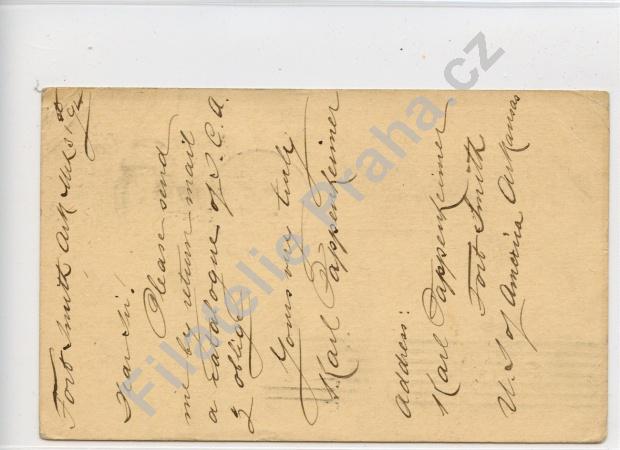 Fort Smith Ark
Dear Sir!
Please send
me by return mail
a catalogue of I. C. A.
& oblige
Yours very truly
Karl Pappenheimer
Address:
Karl Pappenheimer
Fort Smith
U. S of America Arkansas
Filatelie Praha.cz